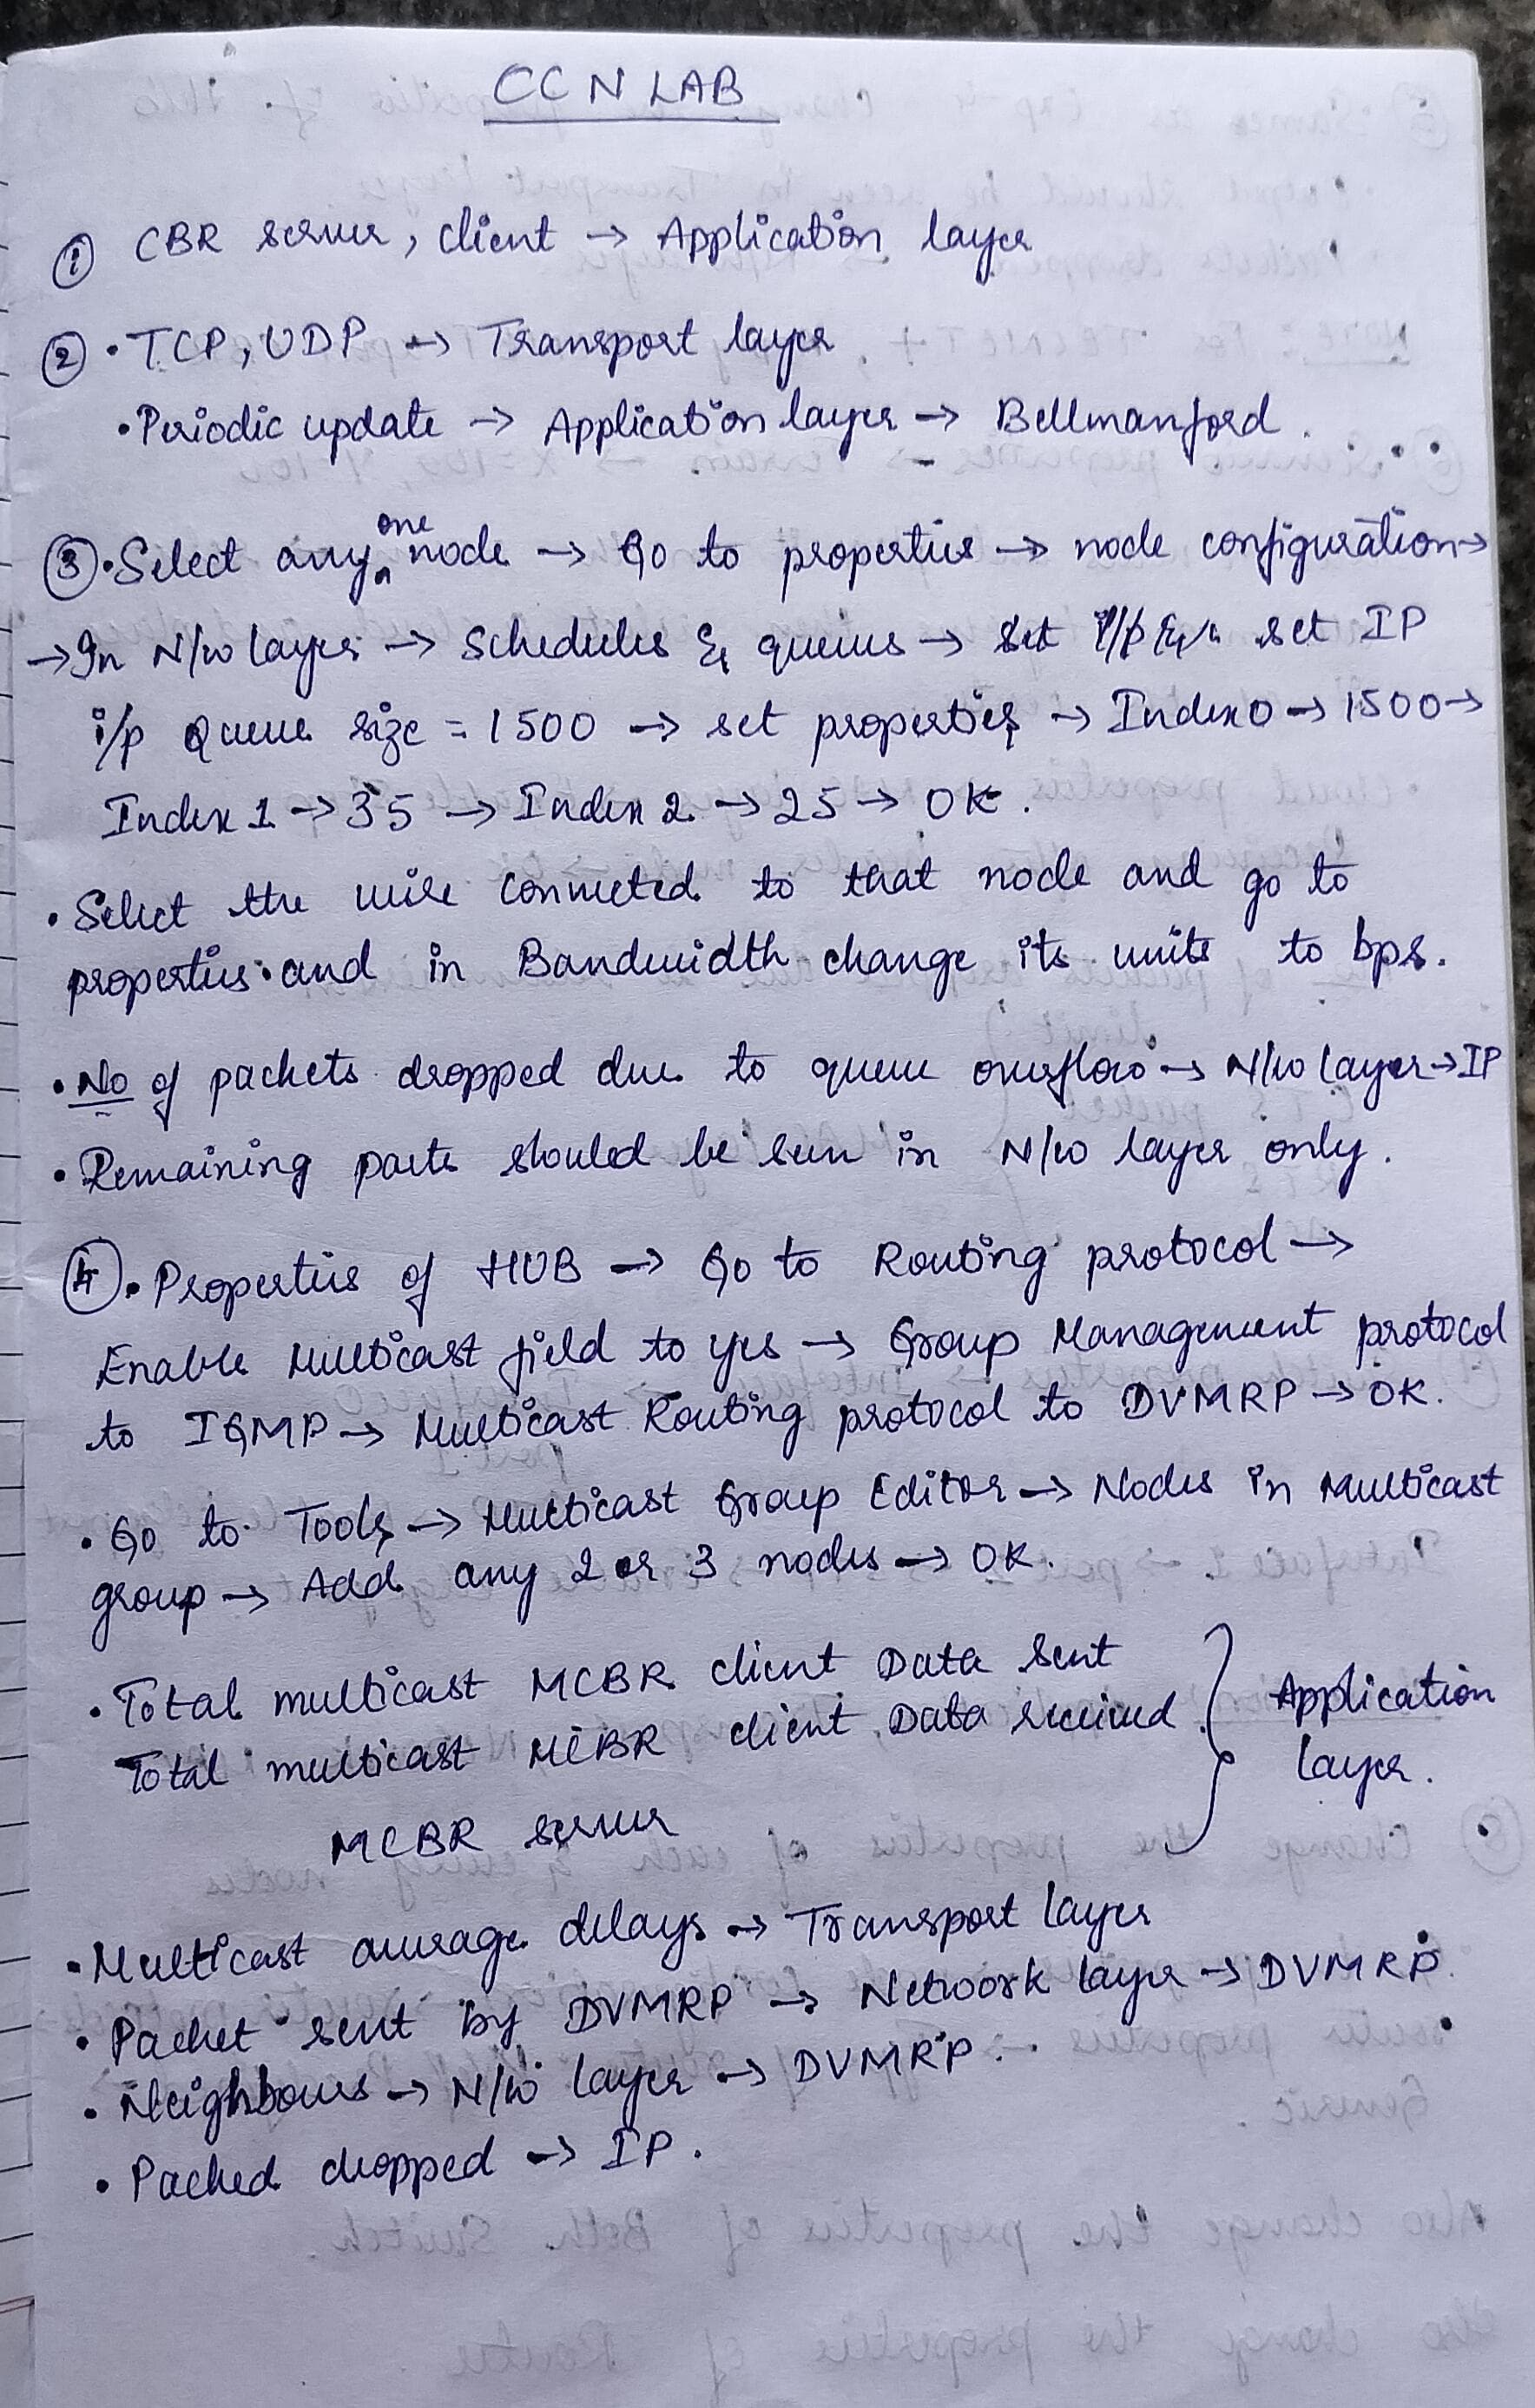 CCN LAB
① CBR server, client → Application layer
② • TCP, UDP → Transport layer
• Periodic update → Application layer → Bellmanford.
③ • Select any one node → Go to properties → node configuration →
→ In N/w layer → Schedules & queues → set set IP
i/p Queue size = 1500 → set properties → Index 0 → 1500 →
Index 1 → 35 → Index 2 → 25 → OK.
• Select the wire connected to that node and go to
properties and in Bandwidth change its units to bps.
• No of packets dropped due to queue overflow → N/w layer → IP
• Remaining parts should be seen in N/w layer only.
④ • Properties of HUB → Go to Routing protocol →
Enable Multicast field to yes → Group Management protocol
to IGMP → Multicast Routing protocol to DVMRP → OK.
• Go to Tools → Multicast Group Editor → Nodes in Multicast
group → Add any 2 or 3 nodes → OK.
• Total multicast MCBR client Data sent
Total multicast MCBR client Data received } Application layer.
MCBR server
• Multicast average delays → Transport layer
• Packet sent by DVMRP → Network layer → DVMRP.
• Neighbours → N/w layer → DVMRP.
• Packed dropped → IP.